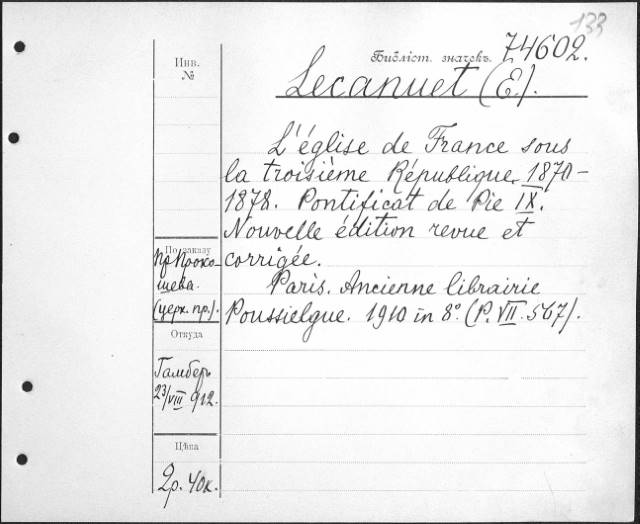 133
Библіот. значекъ. 74602.
Инв.
№
Lecanuet (E).
L'église de France sous
la troisième République. 1870-
1878. Pontificat de Pie IX.
Nouvelle édition revue et
corrigée.
Paris. Ancienne librairie
Poussielgue. 1910 in 8° (P. VII. 567).
По заказу
Пр Проко-
шева.
(церк. пр.).
Откуда
Гамберъ
23/VIII 912.
Цѣна
2р. 40к.